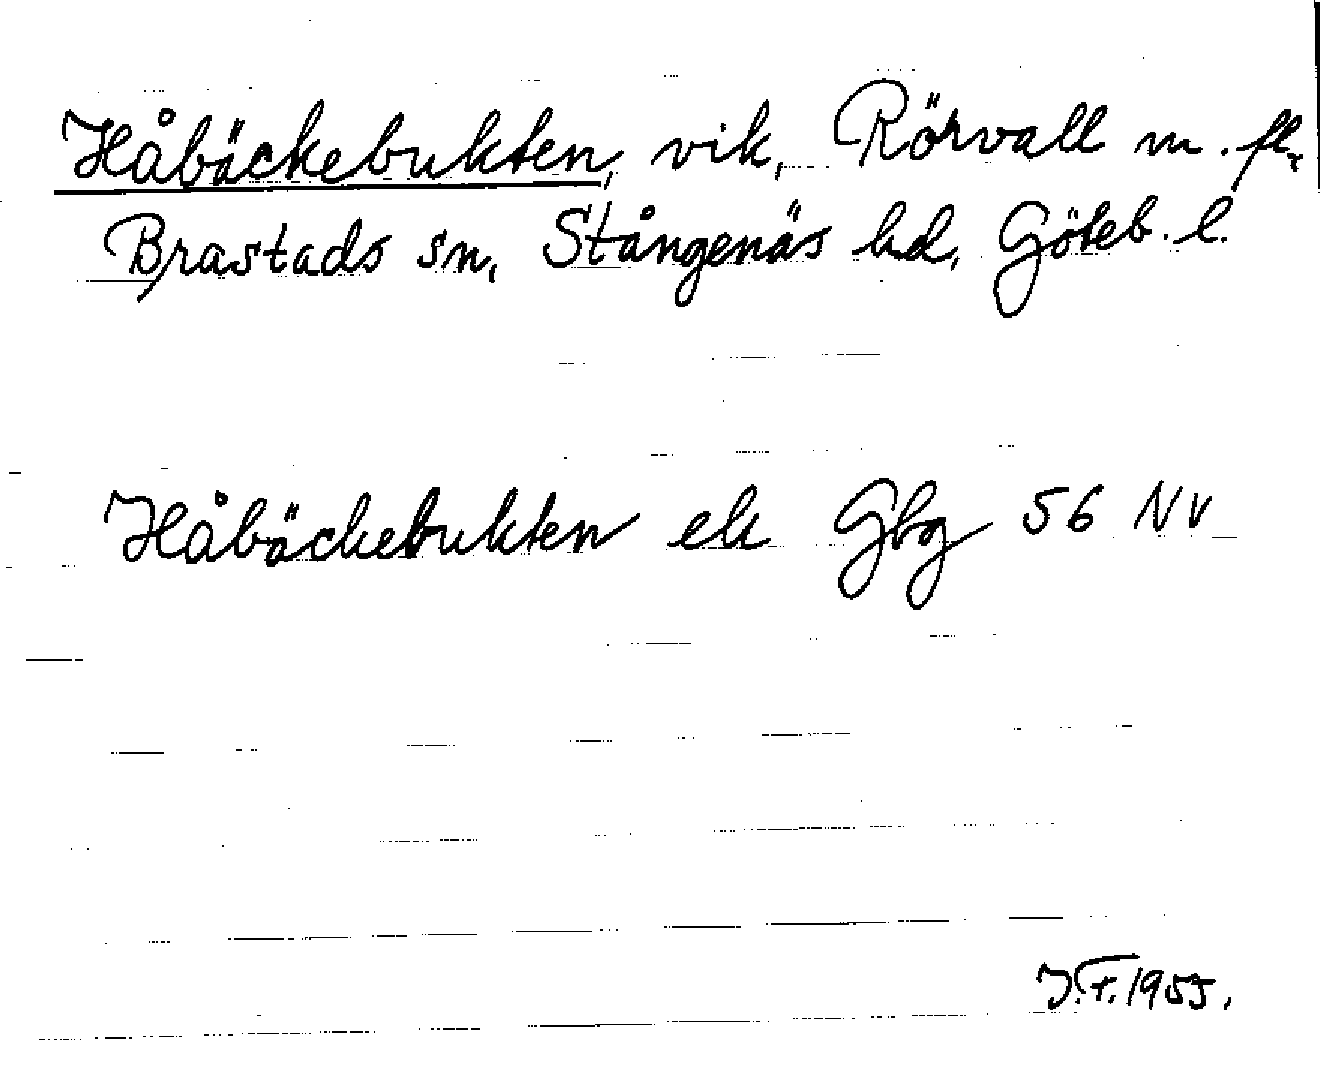 Håbäckebukten, vik, Rörvall m. fl.,
Brastads sn, Stångenäs hd, Göteb. l.
Håbäckebukten ek Gbg 56 NV
J.F. 1955.